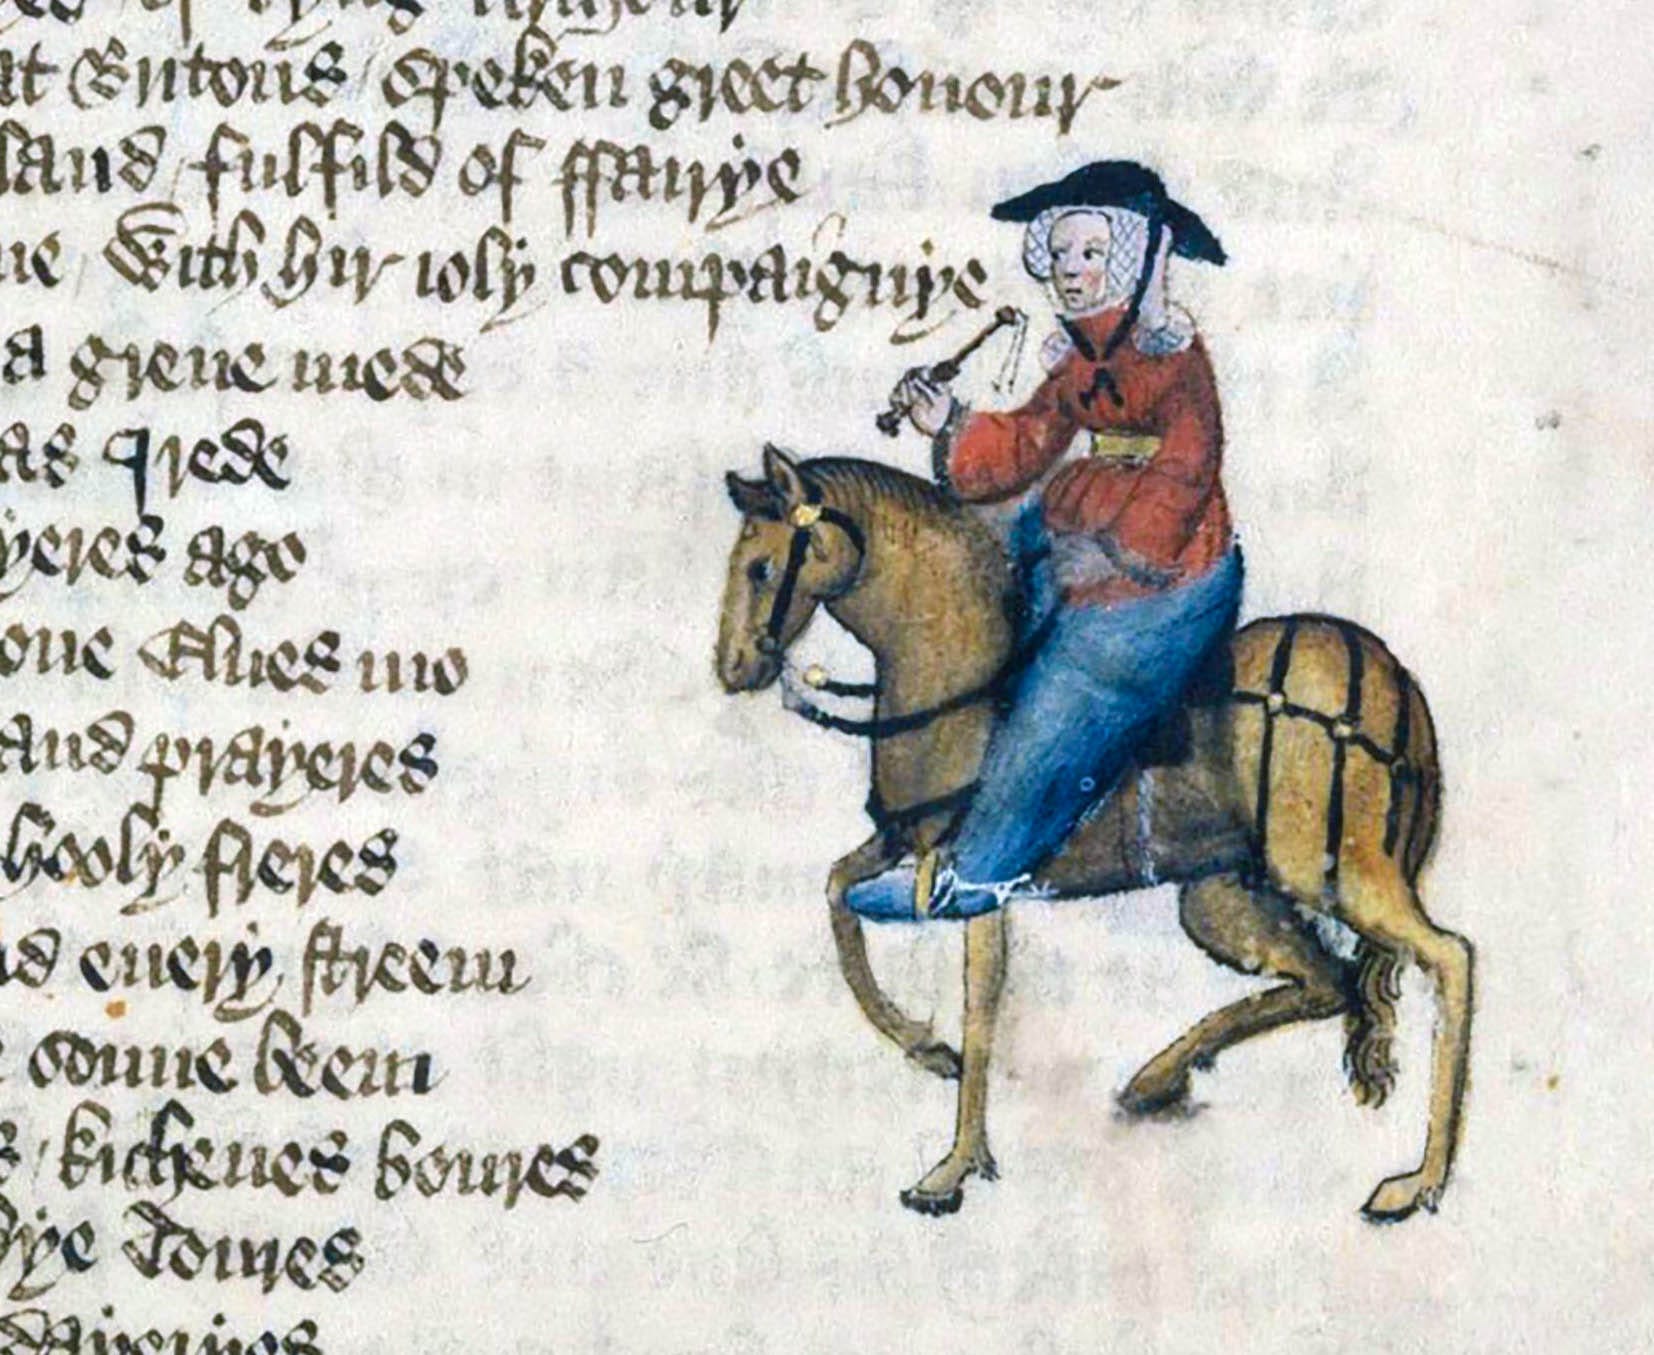 of kyng Arthour
at Britons speken greet honour
land fulfild of ffairye
ne with hir ioly compaignye
a grene mede
as I rede
yeres ago
one Elues mo
and prayeres
hooly freres
nd euery streem
e sonne beem
s / kichenes boures
hye toures
dayeryes